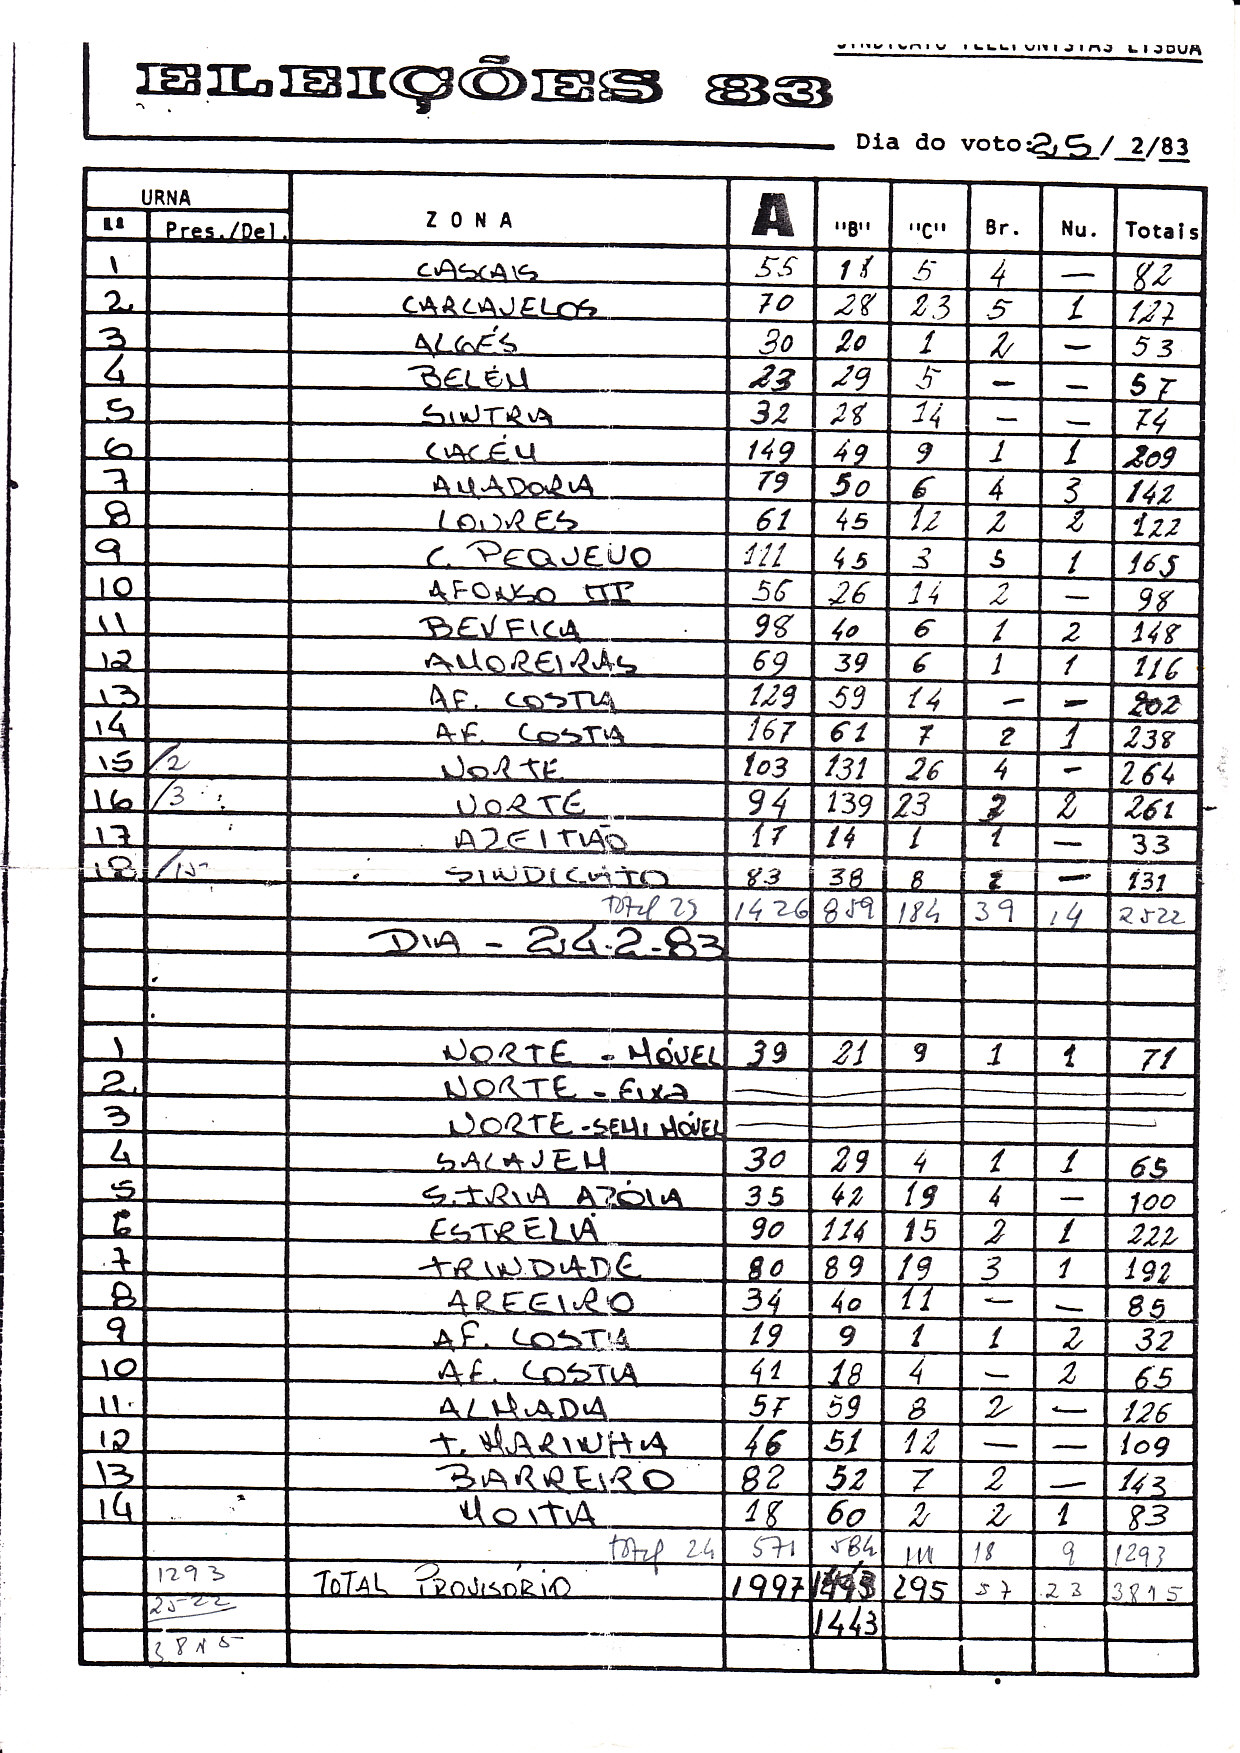 SINDICATO TELEFONISTAS LISBOA
ELEIÇÕES 83
Dia do voto: 25/ 2/83
URNA
Nº Pres./Del. ZONA A "B" "C" Br. Nu. Totais
1 CASCAIS 55 18 5 4 — 82
2 CARCAVELOS 70 28 23 5 1 127
3 ALGÉS 30 20 1 2 — 53
4 BELÉM 23 29 5 — — 57
5 SINTRA 32 28 14 — — 74
6 CACÉM 149 49 9 1 1 209
7 AMADORA 79 50 6 4 3 142
8 LOURES 61 45 12 2 2 122
9 C. PEQUENO 111 45 3 5 1 165
10 AFONSO III 56 26 14 2 — 98
11 BENFICA 98 40 6 1 2 148
12 AMOREIRAS 69 39 6 1 1 116
13 AF. COSTA 129 59 14 — — 202
14 AF. COSTA 167 61 7 2 1 238
15 /2 NORTE 103 131 26 4 - 264
16 /3 NORTE 94 139 23 3 2 261
17 AZEITÃO 17 14 1 1 — 33
18 /15 SINDICATO 83 38 8 2 — 131
Total 25 1426 859 184 39 14 2522
DIA - 24-2-83
1 NORTE - MÓVEL 39 21 9 1 1 71
2 NORTE - FIXA
3 NORTE - SEMI MÓVEL
4 SACAVEM 30 29 4 1 1 65
5 S. IRIA AZÓIA 35 42 19 4 — 100
6 ESTRELA 90 114 15 2 1 222
7 TRINDADE 80 89 19 3 1 192
8 AREEIRO 34 40 11 — — 85
9 AF. COSTA 19 9 1 1 2 32
10 AF. COSTA 41 18 4 — 2 65
11 ALMADA 57 59 8 2 — 126
12 T. MARINHA 46 51 12 — — 109
13 BARREIRO 82 52 7 2 — 143
14 MOITA 18 60 2 2 1 83
total 24 571 584 111 18 9 1293
1293 TOTAL PROVISÓRIO 1997 295 57 23 3815
2522 1443
3815